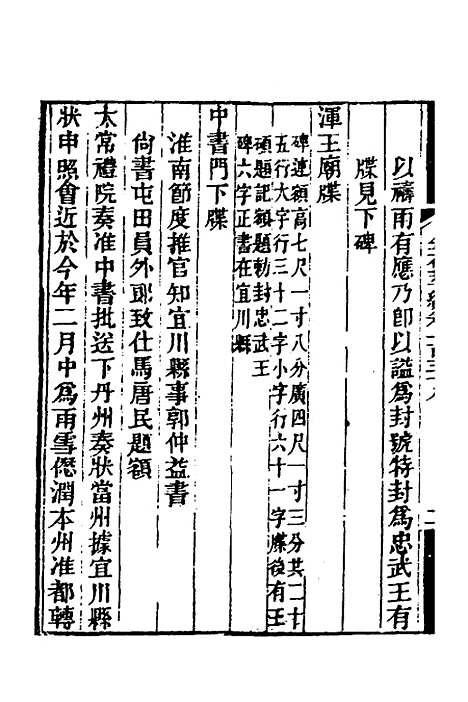 以禱雨有應乃卽以謚爲封號特封爲忠武王有
牒見下碑
渾王廟牒
碑連額高七尺一寸八分廣四尺一寸三分共二十
五行大字行三十二字小字行六十一字牒後有王
碩題記額題勅封忠武王
碑六字正書在宜川縣
中書門下牒
淮南節度推官知宜川縣事郭仲益書
尙書屯田員外郎致仕馬唐民題額
太常禮院奏准中書批送下丹州奏狀當州據宜川縣
狀申照會近於今年二月中爲雨雪愆潤本州准都轉